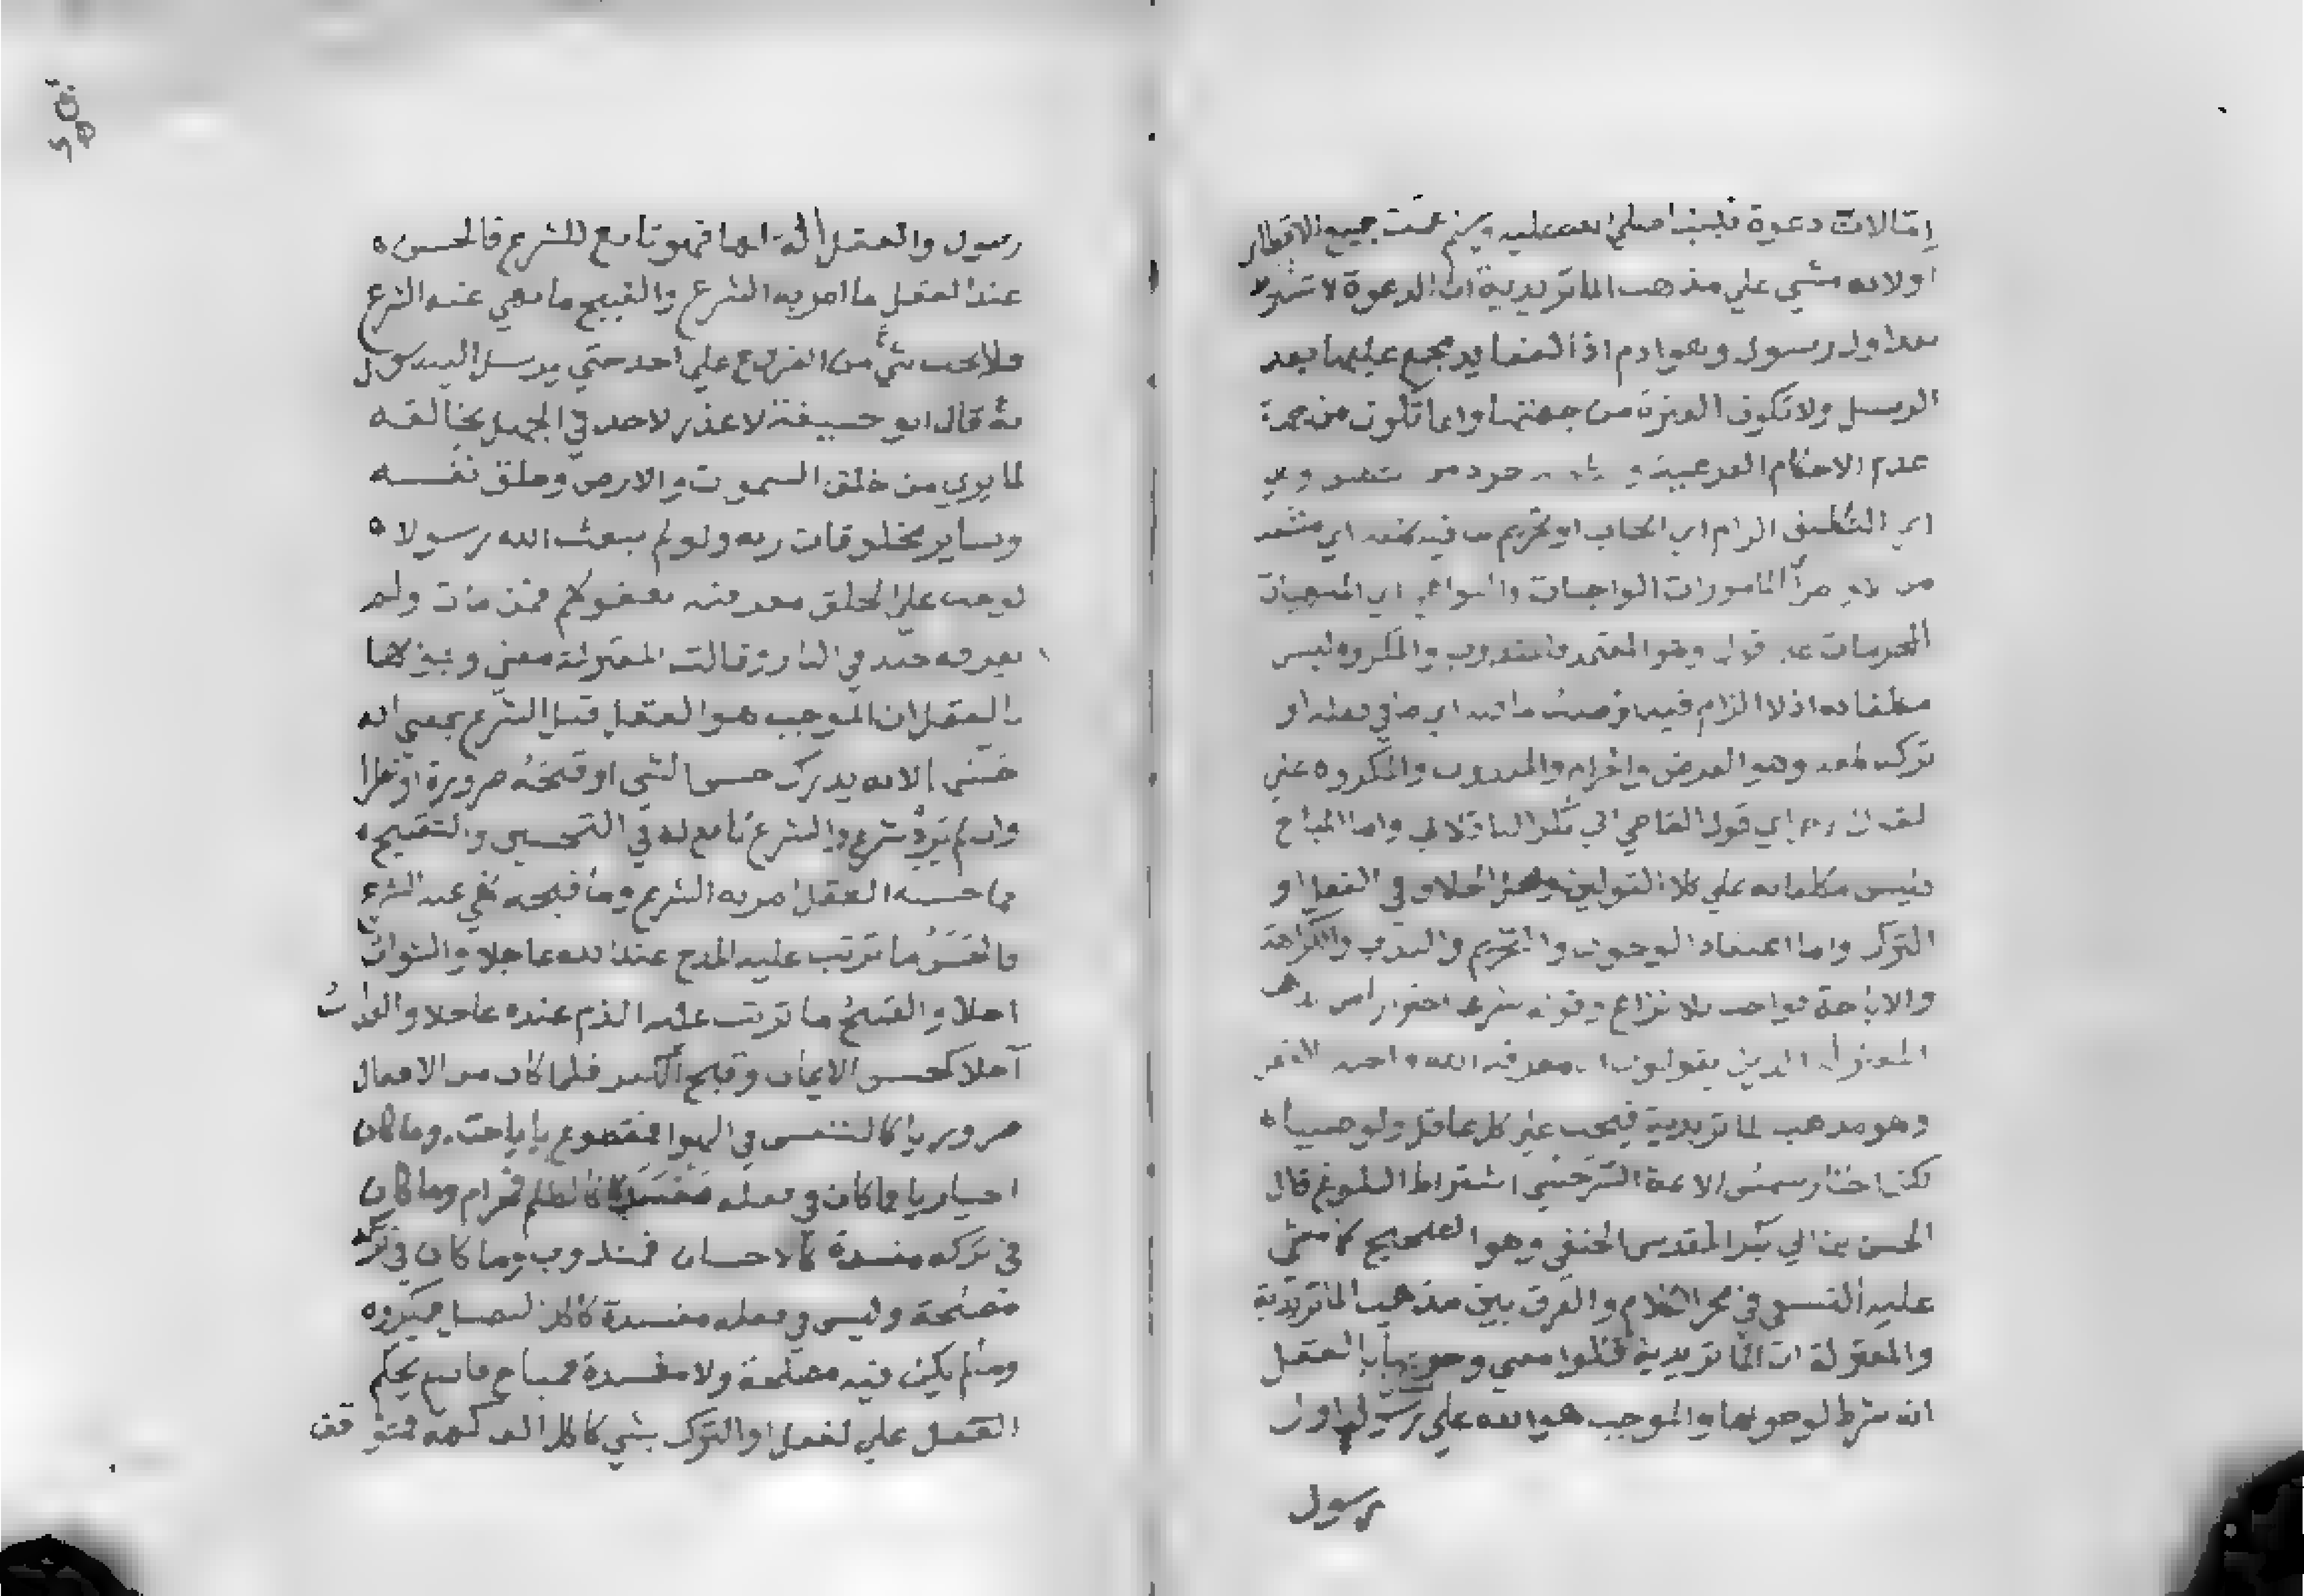 اما لان دعوة نبينا صلى الله عليه وسلم عمت جميع الاقطار
او لانه مشي علي مذهب الماتريدية ان الدعوة لا تشترط
بعد اول رسول وهو ادم اذ العقايد مجمع عليها بعد
الرسل ولا تكون الفترة من جهتها وانما تكون من جهة
عدم الاحكام الفرعية
اي التكليف الزام اي ايجاب او تحريم ما فيه كلفه اي مشقه
من المامورات الواجبات والنواهي اي المنهيات
المحرمات علي قول وهو المعتمد فالمندوب والمكروه ليس
مكلفا به اذ لا الزام فيهما او طلب ما فيه اي في فعله او
تركه كلفه وهو الفرض والحرام والمندوب والمكروه علي
اي قول القاضي ابي بكر الباقلاني واما المباح
فليس مكلفا به علي كلا القولين الخلاف في الفعل او
الترك واما اعتقاد الوجوب والتحريم والندب والكراهة
والاباحة فواجب بلا نزاع وقوله شرعا احترازا من مذهب
المعتزلة الذين يقولون ان معرفة الله واجبة بالعقل
وهو مذهب الماتريدية فيجب علي كل عاقل ولو صبيا
لكن اختار شمس الائمة السرخسي اشتراط البلوغ قال
الحسن بن ابي بكر المقدسي الحنفي وهو الصحيح كما مشي
عليه النسفي في بحر الكلام والفرق بين مذهب الماتريدية
والمعتزلة ان الماتريدية قالوا معني وجوبها بالعقل
انه شرط لوجوبها والموجب هو الله علي رسول اول
رسول
رسول والعقل الة لها فهو تابع للشرع فالحسن
عند العقل ما امر به الشرع والقبيح ما نهي عنه الشرع
فلا يجب شيء من الفروع علي احد حتي يرسل اليه رسول
ثم قال ابو حنيفة لا عذر لاحد في الجهل بخالقه
لما يري من خلق السموت والارض وخلق نفسه
وساير مخلوقات ربه ولو لم يبعث الله رسولا
لوجب علي الخلق معرفته بعقولهم فمن مات ولم
يعرفه خلد في النار وقالت المعتزلة معني وجوبها
بالعقل ان الموجب هو العقل قبل الشرع بمعني انه
الا انه يدرك حسن الشي او قبحه ضرورة او نظرا
وان لم يرد شرع والشرع تابع له في التحسين والتقبيح
فما حسنه العقل امر به الشرع وما قبحه نهي عنه الشرع
فالحسن ما ترتب عليه المدح عند الله عاجلا والثواب
اجلا والقبيح ما ترتب عليه الذم عنده عاجلا والعذاب
آجلا كحسن الايمان وقبح الكفر فلما كان من الافعال
ضروريا كالتنفس في الهوا فمقطوع باباحته وما كان
اختياريا فما كان في فعله مفسدة كالظلم فحرام وما كان
في تركه مفسدة كالاحسان فمندوب وما كان في تركه
مصلحة وليس في فعله مفسدة فمكروه
وما لم يكن فيه مصلحة ولا مفسدة فمباح فان لم يحكم
العقل علي الفعل او الترك بشي كاكل الفاكهة فتوقف